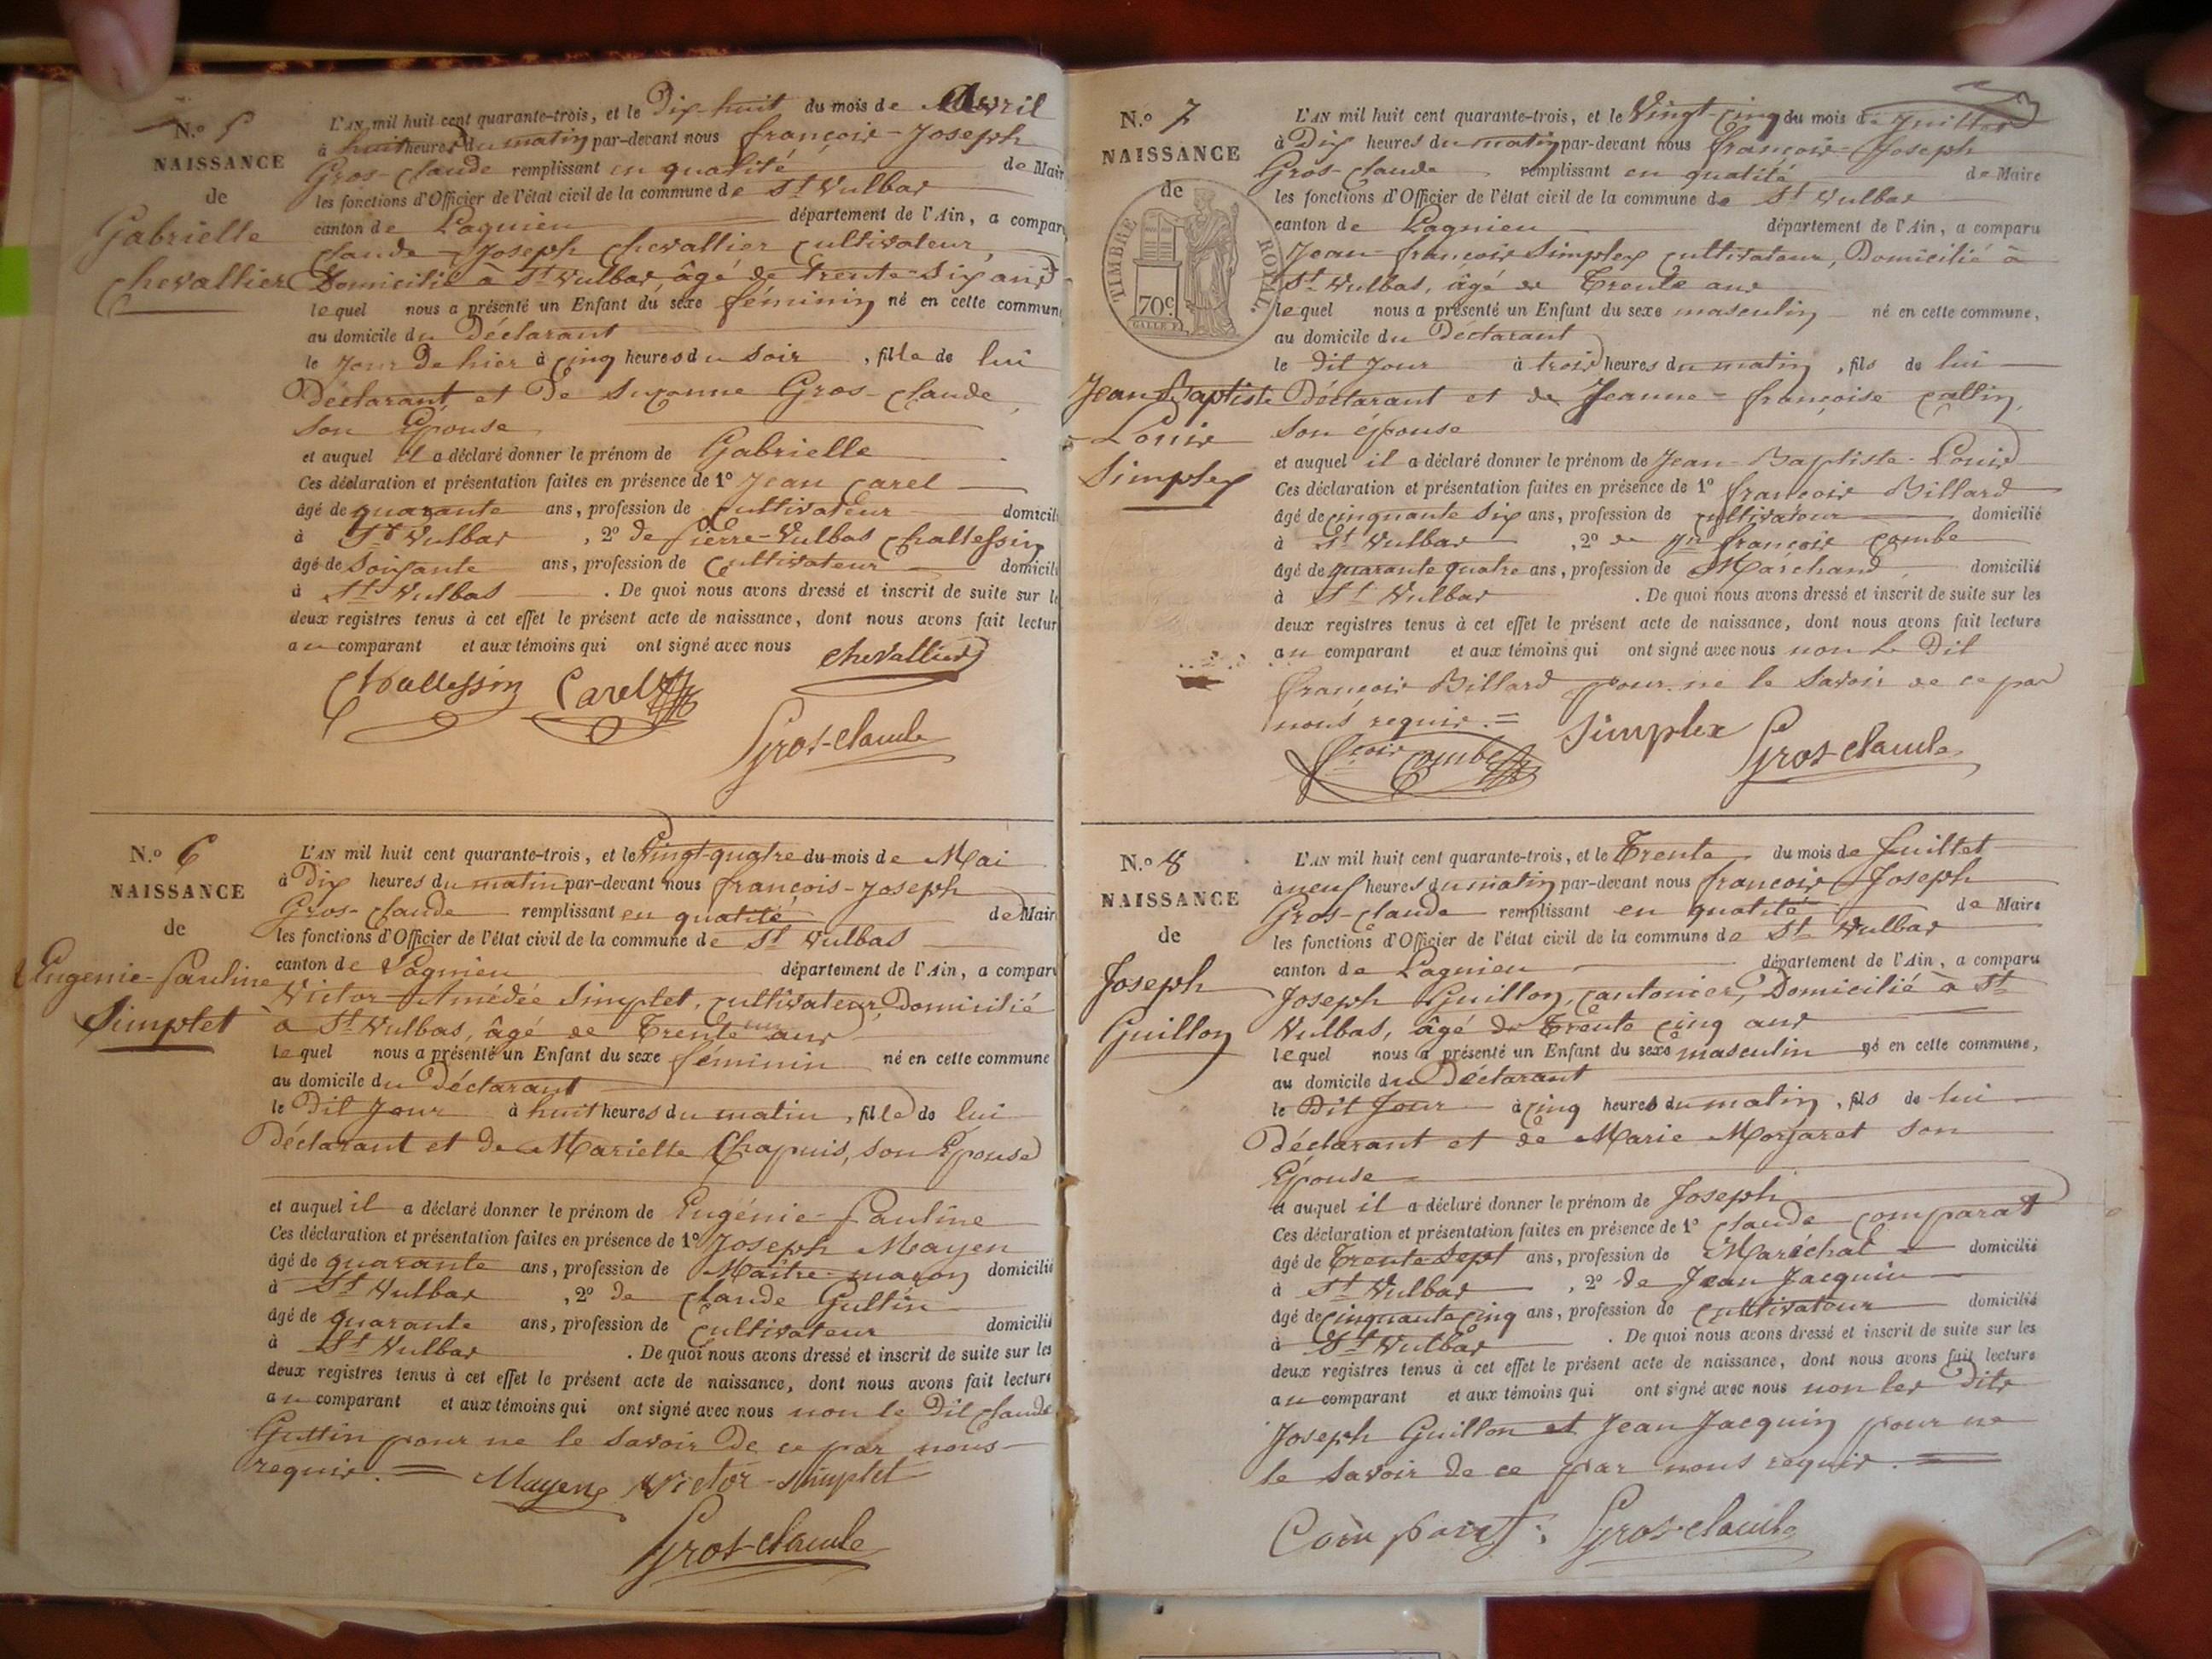 N.º 5
NAISSANCE
de
Gabrielle
Chevallier
L'AN mil huit cent quarante-trois, et le Dix-huit du mois de Avril
à huit heures du matin par-devant nous françois-Joseph
Gros-Claude remplissant en qualité de Mair
les fonctions d'Officier de l'état civil de la commune de St Vulbas
canton de Lagnieu département de l'Ain, a compar
Claude-Joseph Chevallier Cultivateur,
Domicilié à St Vulbas, âgé de trente-Six ans
lequel nous a présenté un Enfant du sexe féminin né en cette commun
au domicile du Déclarant
le Jour De hier à cinq heures du Soir, fille de lui
Déclarant et De Suzanne Gros-Claude,
Son Épouse
et auquel il a déclaré donner le prénom de Gabrielle
Ces déclaration et présentation faites en présence de 1º Jean Carel
âgé de quarante ans, profession de Cultivateur domicil
à St Vulbas, 2º de Pierre-Vulbas Challessin
âgé de Soixante ans, profession de Cultivateur domicil
à St Vulbas. De quoi nous avons dressé et inscrit de suite sur l
deux registres tenus à cet effet le présent acte de naissance, dont nous avons fait lectur
au comparant et aux témoins qui ont signé avec nous
Chevallier
Challessin Carel
Gros-claude
N.º 6
NAISSANCE
de
Eugenie-Pauline
Simplet
L'AN mil huit cent quarante-trois, et le Vingt-quatre du mois de Mai
à Dix heures du matin par-devant nous françois-Joseph
Gros-Claude remplissant en qualité de Mair
les fonctions d'Officier de l'état civil de la commune de St Vulbas
canton de Lagnieu département de l'Ain, a compar
Victor-Amédée Simplet, cultivateur, Domicilié
à St Vulbas, âgé de Trente ans
lequel nous a présenté un Enfant du sexe féminin né en cette commune
au domicile du Déclarant
le Dit Jour à huit heures du matin, fille de lui
Déclarant et de Mariette Chapuis, son Épouse
et auquel il a déclaré donner le prénom de Eugénie-Pauline
Ces déclaration et présentation faites en présence de 1º Joseph Mayen
âgé de quarante ans, profession de Maître-maçon domicilié
à St Vulbas, 2º de Claude Guttin
âgé de quarante ans, profession de Cultivateur domicilié
à St Vulbas. De quoi nous avons dressé et inscrit de suite sur les
deux registres tenus à cet effet le présent acte de naissance, dont nous avons fait lecture
au comparant et aux témoins qui ont signé avec nous non le Dit Claude
Guttin pour ne le Savoir De ce par nous
requis. = Mayen Victor-Simplet
Gros-claude
N.º 7
NAISSANCE
de
TIMBRE ROYAL.
70c
Jean Baptiste
Louis
Simplex
L'AN mil huit cent quarante-trois, et le Vingt-cinq du mois de Juillet
à Dix heures du matin par-devant nous françois-Joseph
Gros-Claude remplissant en qualité de Maire
les fonctions d'Officier de l'état civil de la commune de St Vulbas
canton de Lagnieu département de l'Ain, a comparu
Jean-françois Simplex cultivateur, Domicilié à
St Vulbas, âgé de Trente ans
lequel nous a présenté un Enfant du sexe masculin né en cette commune,
au domicile du Déclarant
le Dit Jour à trois heures du matin, fils de lui
Déclarant et de Jeanne-françoise Callin,
Son épouse
et auquel il a déclaré donner le prénom de Jean-Baptiste-Louis
Ces déclaration et présentation faites en présence de 1º françois Billard
âgé de cinquante Six ans, profession de cultivateur domicilié
à St Vulbas, 2º de françois Combe
âgé de quarante quatre ans, profession de Marchand, domicilié
à St Vulbas. De quoi nous avons dressé et inscrit de suite sur les
deux registres tenus à cet effet le présent acte de naissance, dont nous avons fait lecture
au comparant et aux témoins qui ont signé avec nous non le Dit
françois Billard pour ne le Savoir de ce par
nous requis. = Simplex
fçois Combe Gros-claude
N.º 8
NAISSANCE
de
Joseph
Guillon
L'AN mil huit cent quarante-trois, et le Trente du mois de Juillet
à neuf heures du matin par-devant nous françois-Joseph
Gros-Claude remplissant en qualité de Maire
les fonctions d'Officier de l'état civil de la commune de St Vulbas
canton de Lagnieu département de l'Ain, a comparu
Joseph Guillon, cantonier, Domicilié à St
Vulbas, âgé de Trente cinq ans
lequel nous a présenté un Enfant du sexe masculin né en cette commune,
au domicile du Déclarant
le Dit Jour à cinq heures du matin, fils de lui
Déclarant et de Marie Morjaret Son
Épouse
et auquel il a déclaré donner le prénom de Joseph
Ces déclaration et présentation faites en présence de 1º Claude Comparat
âgé de Trente Sept ans, profession de Maréchal domicilié
à St Vulbas, 2º de Jean Jacquin
âgé de cinquante cinq ans, profession de cultivateur domicilié
à St Vulbas. De quoi nous avons dressé et inscrit de suite sur les
deux registres tenus à cet effet le présent acte de naissance, dont nous avons fait lecture
au comparant et aux témoins qui ont signé avec nous non les Dits
Joseph Guillon et Jean Jacquin pour ne
le Savoir de ce par nous requis. =
Gros-claude